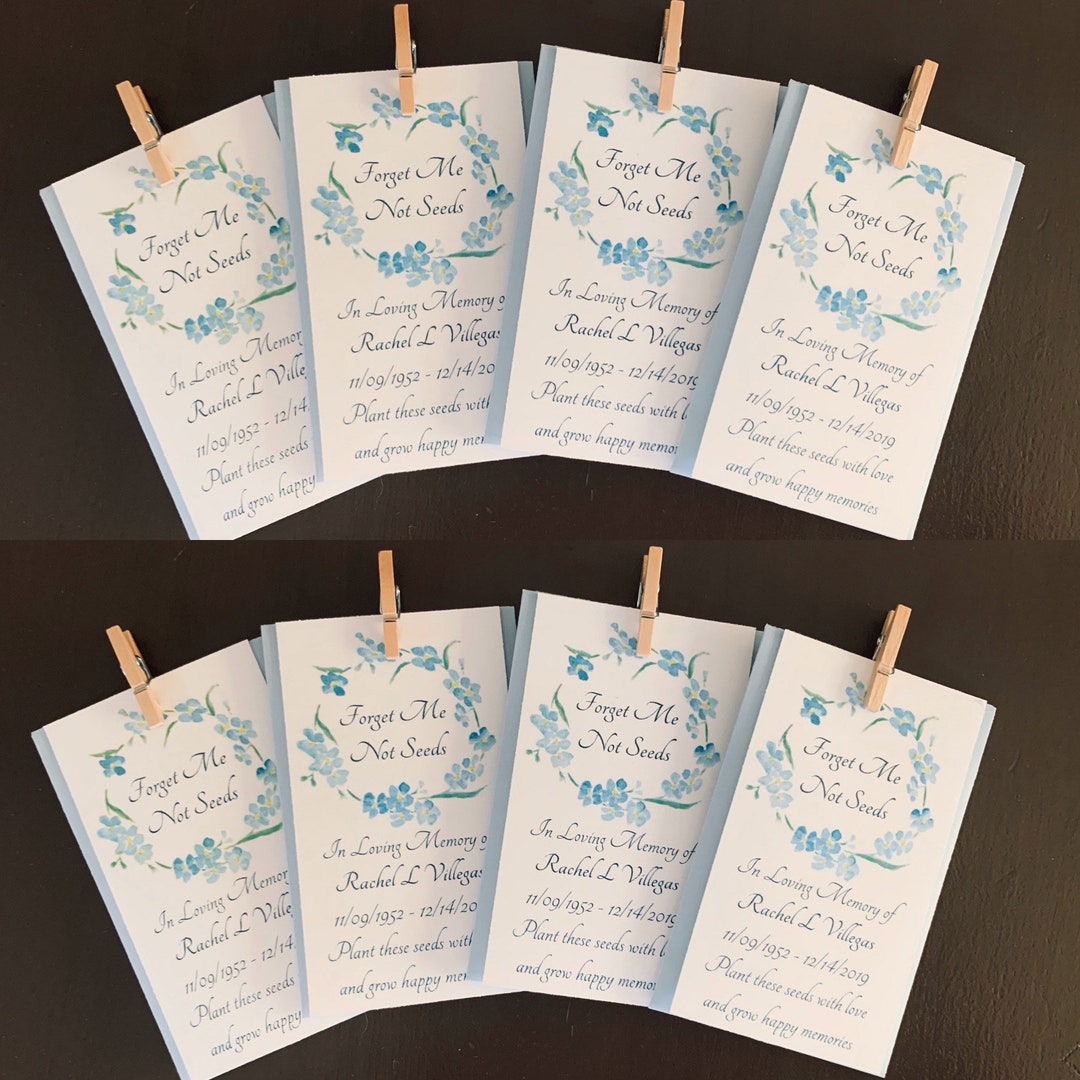 Forget Me
Not Seeds
In Loving Memor
Rachel L Ville
11/09/1952 - 12/14
Plant these seeds
and grow happy
Forget Me
Not Seeds
In Loving Memory o
Rachel L Villegas
11/09/1952 - 12/14/20
Plant these seeds with
and grow happy mem
Forget Me
Not Seeds
In Loving Memory of
Rachel L Villegas
11/09/1952 - 12/14/2019
Plant these seeds with l
and grow happy memo
Forget Me
Not Seeds
In Loving Memory of
Rachel L Villegas
11/09/1952 - 12/14/2019
Plant these seeds with love
and grow happy memories
Forget Me
Not Seeds
In Loving Memor
Rachel L Ville
11/09/1952 - 12/14
Plant these seeds
and grow happy
Forget Me
Not Seeds
In Loving Memory o
Rachel L Villegas
11/09/1952 - 12/14/20
Plant these seeds with
and grow happy mem
Forget Me
Not Seeds
In Loving Memory of
Rachel L Villegas
11/09/1952 - 12/14/2019
Plant these seeds with l
and grow happy memo
Forget Me
Not Seeds
In Loving Memory of
Rachel L Villegas
11/09/1952 - 12/14/2019
Plant these seeds with love
and grow happy memories